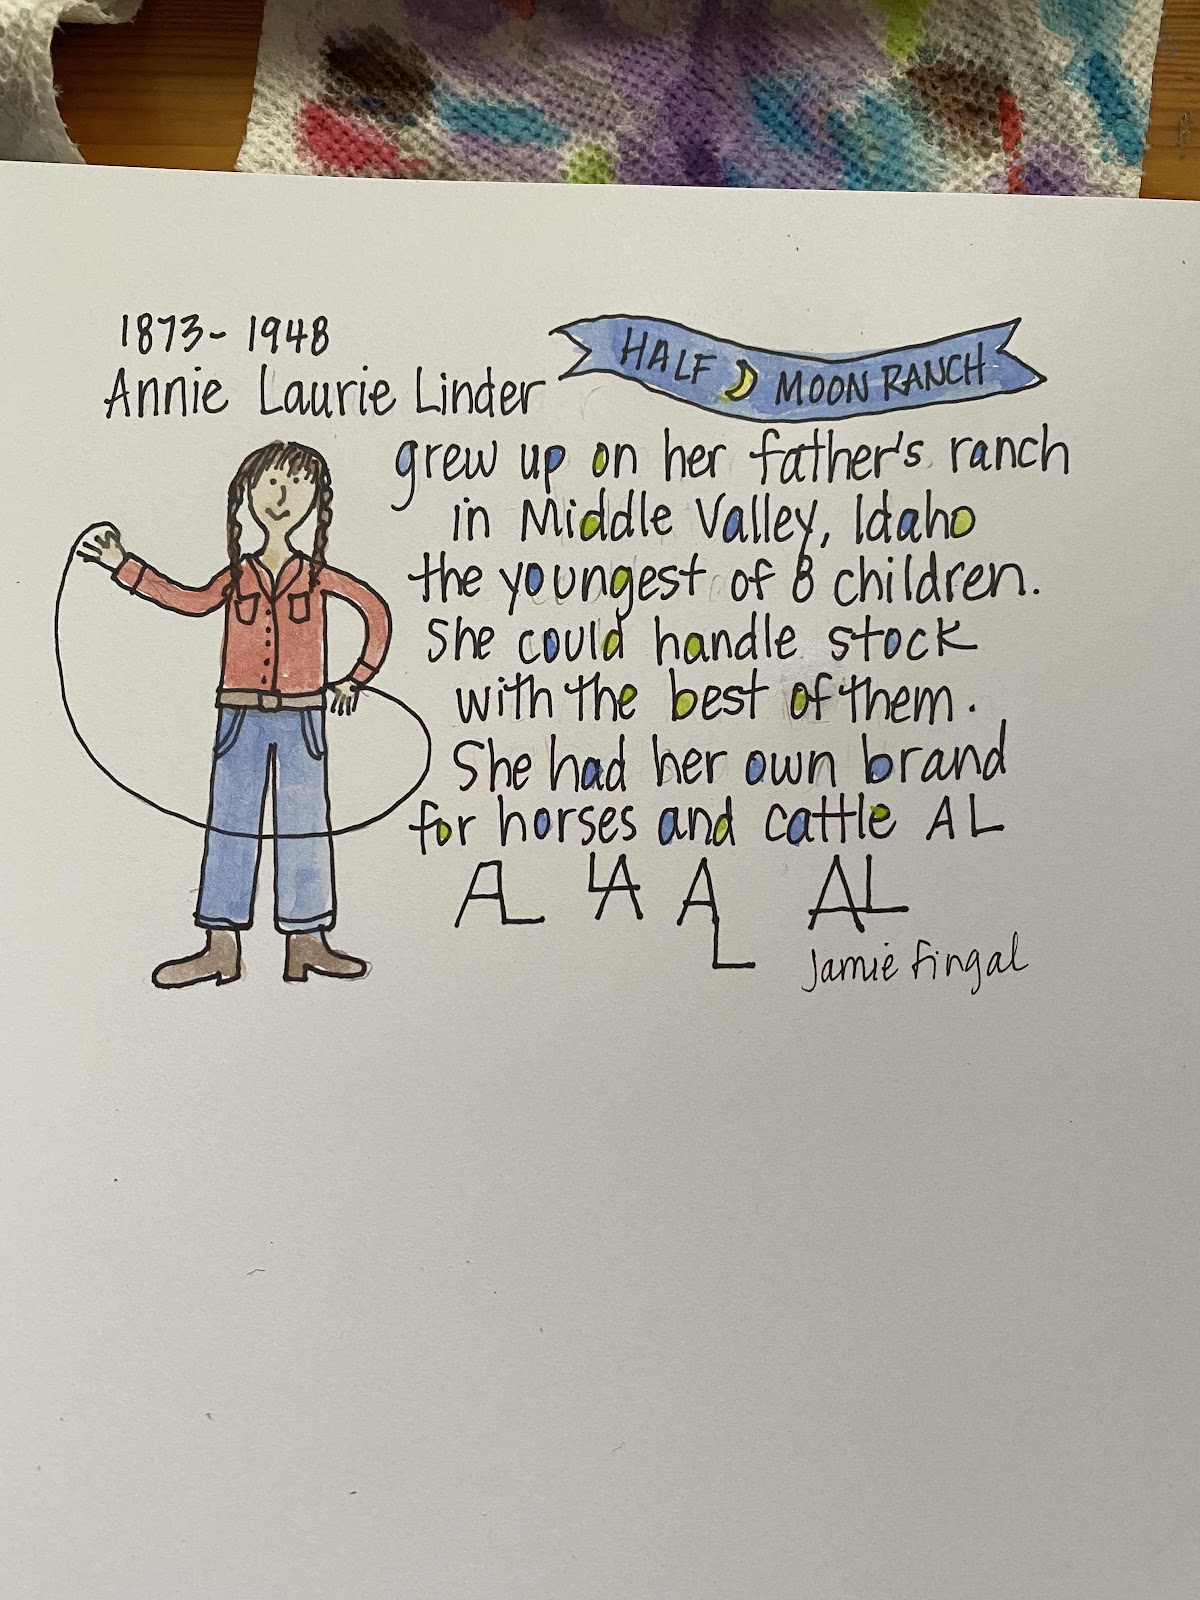 1873-1948
Annie Laurie Linder
HALF MOON RANCH
grew up on her father's ranch
in Middle Valley, Idaho
the youngest of 8 children.
She could handle stock
with the best of them.
She had her own brand
for horses and cattle AL
AL LA AL AL
Jamie Fingal